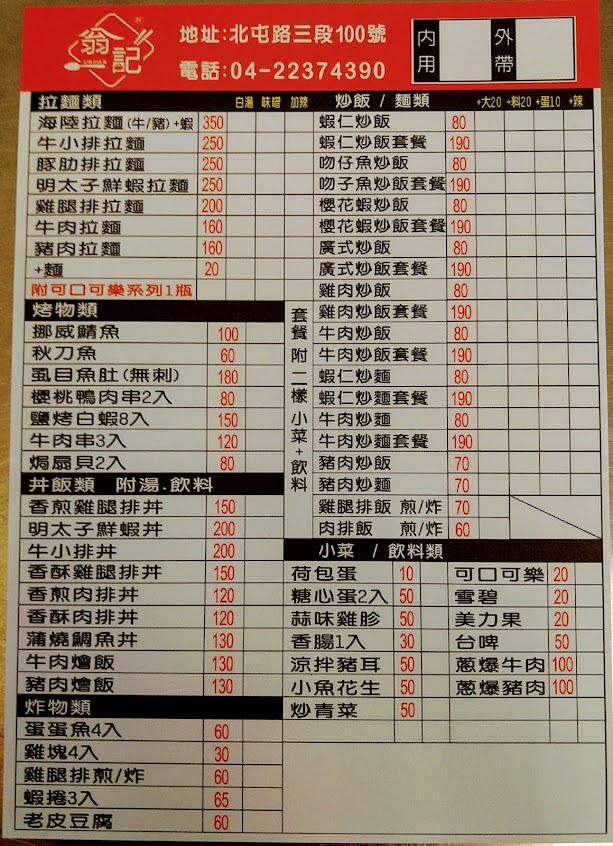 翁記
地址:北屯路三段100號
電話:04-22374390
內用
外帶
拉麵類 白湯 味噌 加辣
海陸拉麵(牛/豬)+蝦 350
牛小排拉麵 250
豚肋排拉麵 250
明太子鮮蝦拉麵 250
雞腿排拉麵 200
牛肉拉麵 160
豬肉拉麵 160
+麵 20
附可口可樂系列1瓶
烤物類
挪威鯖魚 100
秋刀魚 60
虱目魚肚(無刺) 180
櫻桃鴨肉串2入 80
鹽烤白蝦8入 150
牛肉串3入 120
焗扇貝2入 80
丼飯類 附湯.飲料
香煎雞腿排丼 150
明太子鮮蝦丼 200
牛小排丼 200
香酥雞腿排丼 150
香煎肉排丼 120
香酥肉排丼 120
蒲燒鯛魚丼 130
牛肉燴飯 130
豬肉燴飯 130
炸物類
蛋蛋魚4入 60
雞塊4入 30
雞腿排煎/炸 60
蝦捲3入 65
老皮豆腐 60
炒飯 / 麵類 +大20 +料20 +蛋10 +辣
蝦仁炒飯 80
蝦仁炒飯套餐 190
吻仔魚炒飯 80
吻子魚炒飯套餐 190
櫻花蝦炒飯 80
櫻花蝦炒飯套餐 190
廣式炒飯 80
廣式炒飯套餐 190
雞肉炒飯 80
雞肉炒飯套餐 190
牛肉炒飯 80
牛肉炒飯套餐 190
蝦仁炒麵 80
蝦仁炒麵套餐 190
牛肉炒麵 80
牛肉炒麵套餐 190
豬肉炒飯 70
豬肉炒麵 70
雞腿排飯 煎/炸 70
肉排飯 煎/炸 60
套餐 附二樣 小菜+飲料
小菜 / 飲料類
荷包蛋 10 可口可樂 20
糖心蛋2入 50 雪碧 20
蒜味雞胗 50 美力果 20
香腸1入 30 台啤 50
涼拌豬耳 50 蔥爆牛肉 100
小魚花生 50 蔥爆豬肉 100
炒青菜 50